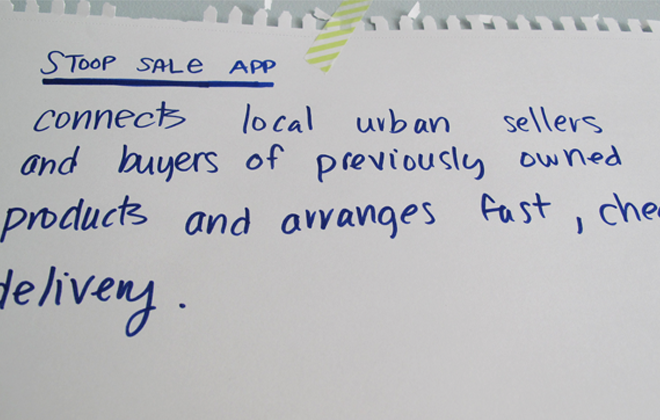 STOOP SALE APP
connects local urban sellers
and buyers of previously owned
products and arranges fast,
delivery.